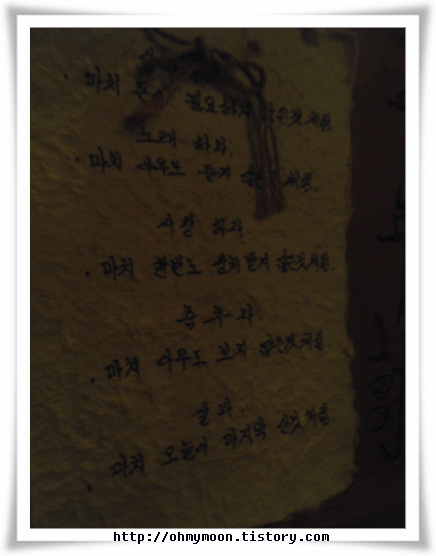 · 마치 필요하지 않은것처럼.
노래 하라.
· 마치 아무도 듣지 처럼.
사랑 하라.
· 마치 한번도 상처 받지 않은것처럼.
춤 추라.
· 마치 아무도 보지 않은것처럼.
살라.
· 마치 오늘이 마지막 인것처럼.
http://ohmymoon.tistory.com